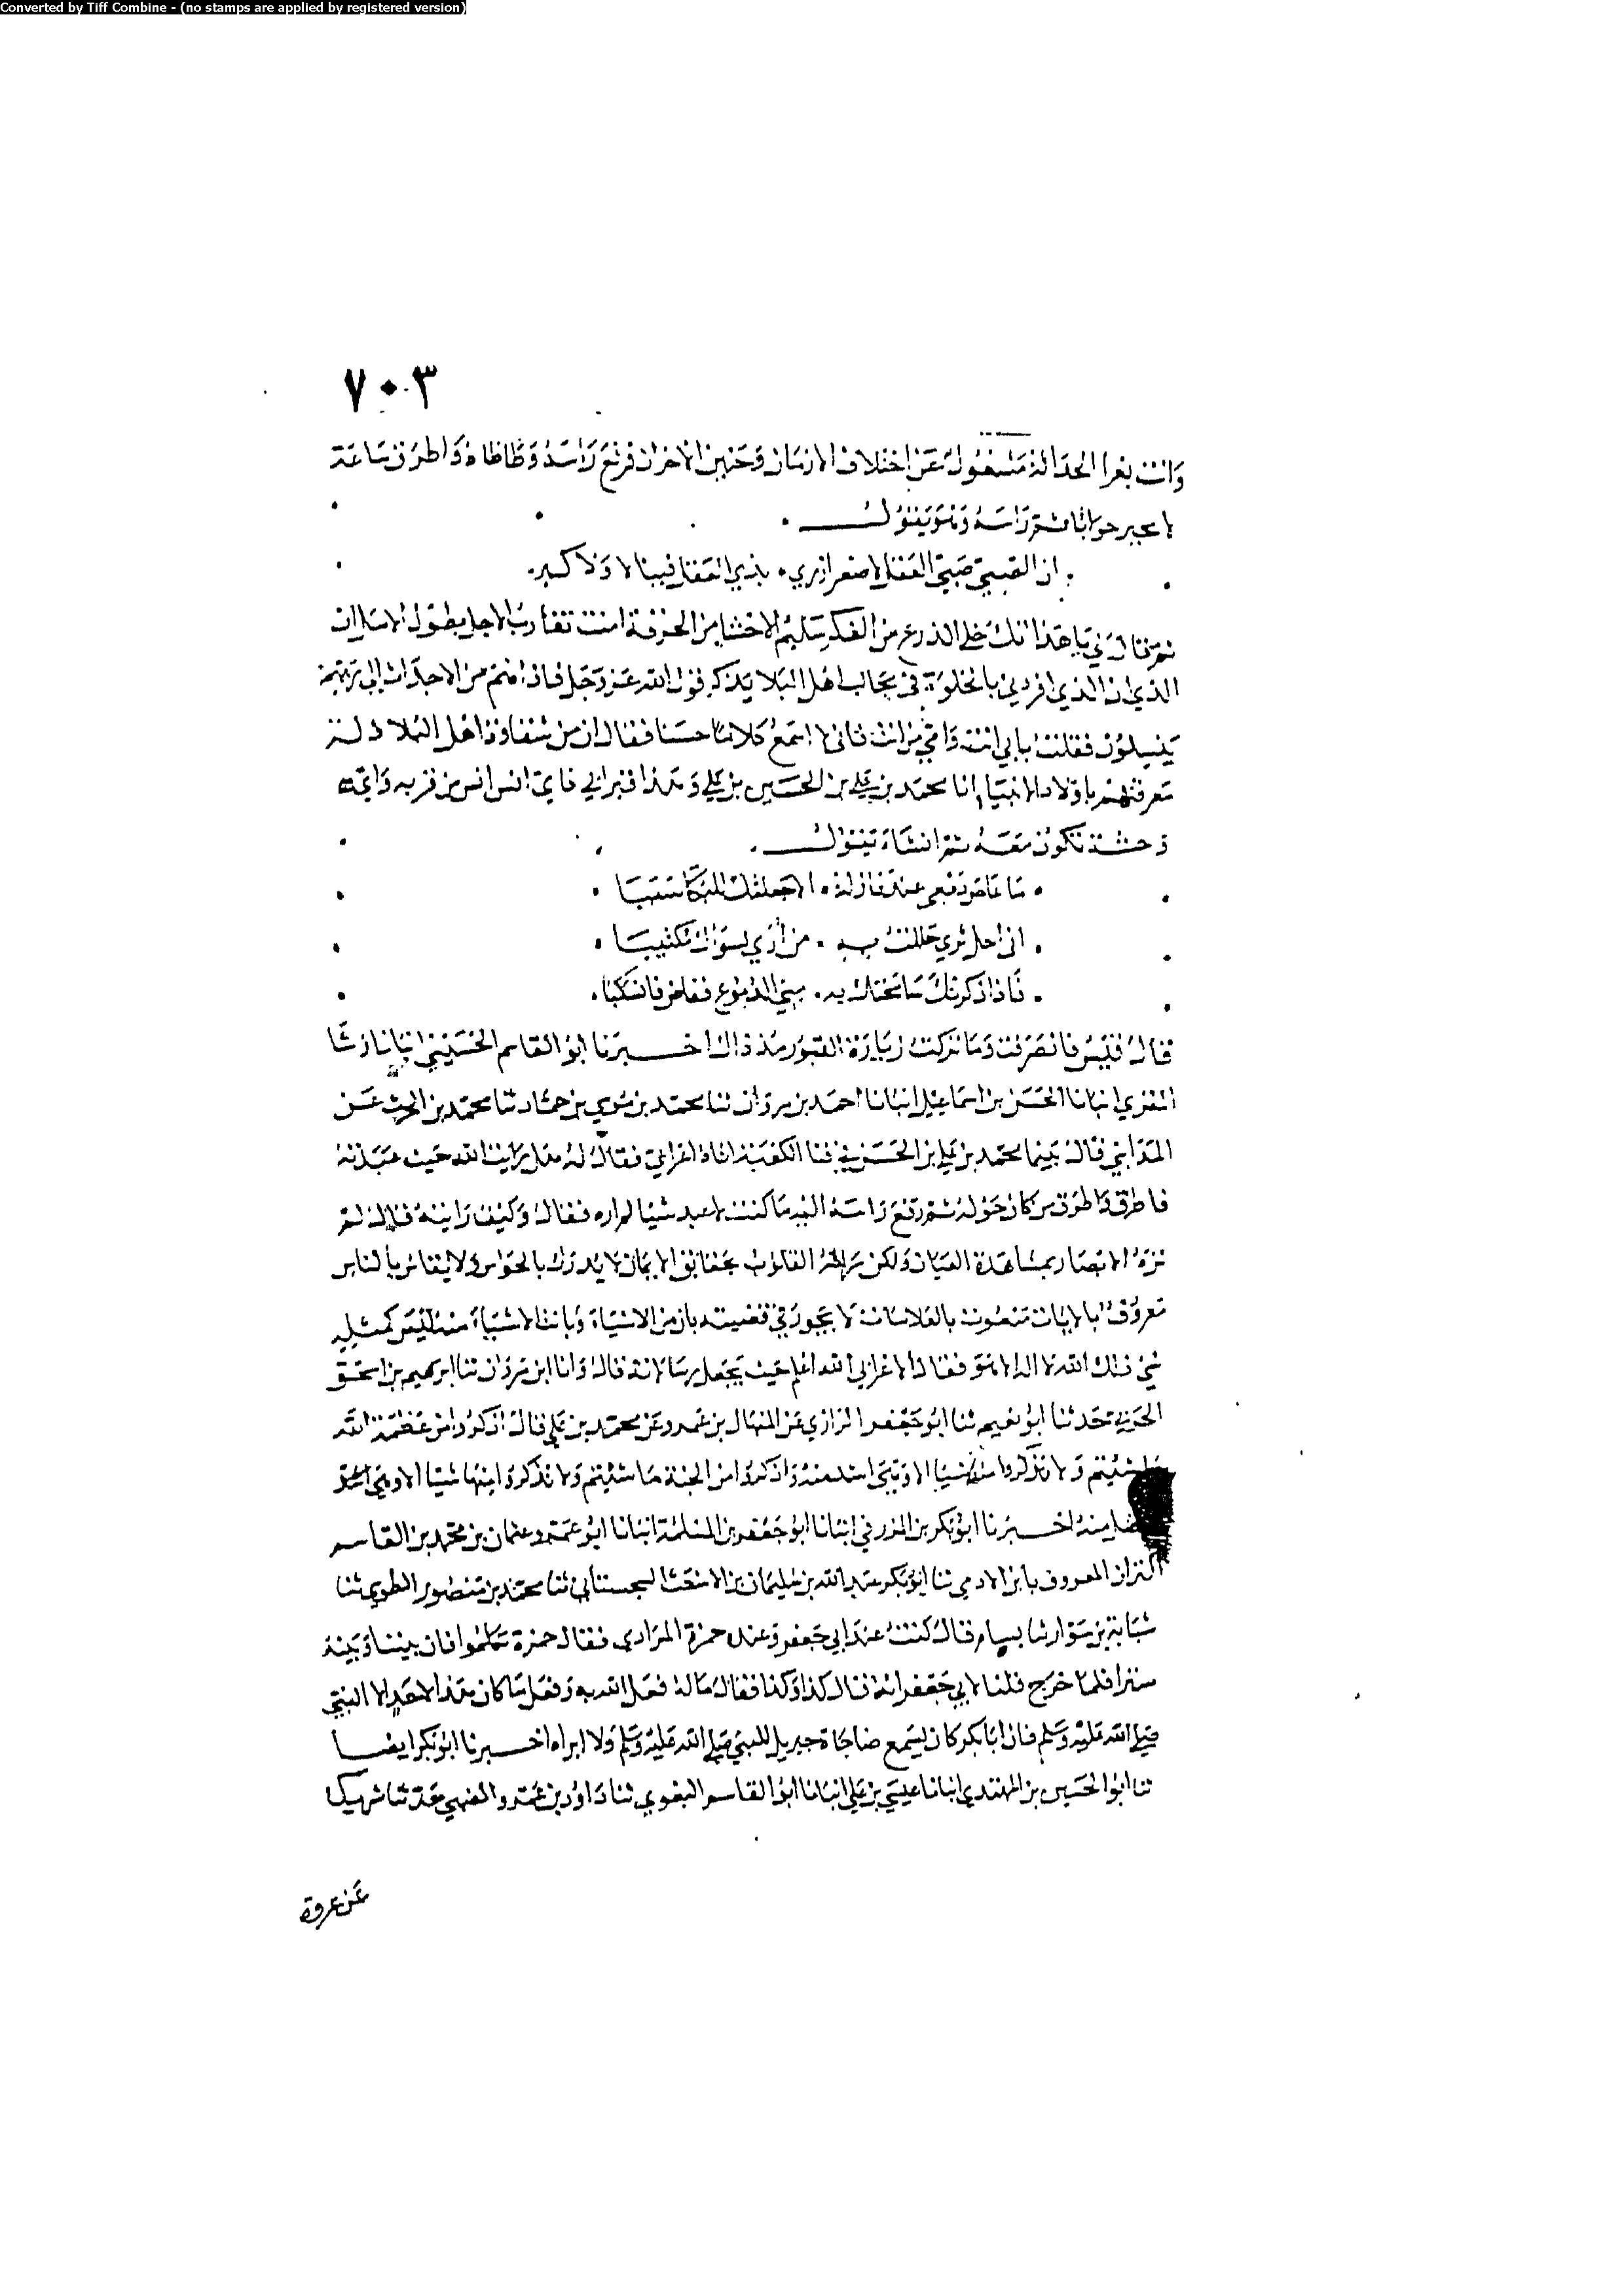 Converted by Tiff Combine - (no stamps are applied by registered version)
٧٠٣
وانت بغر الحداثة مشغول عن اختلاف الازمان وحنين الاخزان فرفع راسه وطاطاه واطرق ساعة
لا يحير جوابا ثم راسه وهو يقول
ان الصبي صبي العقل لا صغر ازري بذي العقل فينا لا ولا كبر
ثم قال لي يا هذا انك خلي الذرع من الفكر سليم الاحشا من الحرقة امنت تقارب الاجل بطول الامل ان
الذي افردني بالخلوة في مجالس اهل البلا تذكر قول الله عز وجل فاذا هم من الاجداث الى ربهم
ينسلون فقلت بابي انت وامي من انت فاني لا اسمع كلاما حسنا فقال ان من شقاوة اهل البلاد لة
معرفتهم باولاد الانبيا انا محمد بن علي بن الحسين بن علي وهذا قبر ابي فاي انس انس من قربه واي
وحشة تكون معه ثم انشاء يقول
ما غاض دمعي عند نازلة الا جعلتك للبكا سببا
اني اجل ثري حللت به من ان اري لسواك مكتيبا
فاذا ذكرتك سامحتك به مني الدموع ففاض فانسكبا
قال قيس فانصرفت وما تركت زيارة القبور مذ ذاك اخبرنا ابو القاسم الحسيني انبانا رشا
المقري انبانا الحسن بن اسماعيل انبانا احمد بن مروان ثنا محمد بن موسي بن حماد ثنا محمد بن الحرث عن
المدايني قال بينما محمد بن علي بن الحسين في فنا الكعبة اتاه اعرابي فقال له هل رايت الله حيث عبدته
فاطرق واطرق من كان حوله ثم رفع راسه اليه ما كنت لاعبد شيا لم اره فقال وكيف رايته قال لم
تره الابصار بمشاهدة العيان ولكن راته القلوب بحقايق الايمان لا يدرك بالحواس ولا يقاس بالناس
معروف بالايات منعوت بالعلامات لا يجوز في قضيته بان من الاشياء وبانت الاشياء منه ليس كمثله
شي ذلك الله لا اله الا هو فقال الاعرابي الله اعلم حيث يجعل رسالاته قال وانا ابن مروان ثنا ابرهيم بن اسحق
الحربي حدثنا ابو نعيم ثنا ابو جعفر الرازي عن المنهال بن عمرو عن محمد بن علي قال اذكروا من عظمة الله
ما شئتم ولا تذكروا منه شيا الا وهي اشد منه واذكروا من الجنة ما شئتم ولا تذكروا منها شيا الا وهي اشد
منه اخبرنا ابو بكر بن المزرفي انبانا ابو جعفر بن المسلمة انبانا ابو عمرو عثمان بن محمد بن القاسم
البزاز المعروف بابن الادمي ثنا ابو بكر عبد الله بن سليمان بن الاشعث السجستاني ثنا محمد بن منصور الطوسي ثنا
شبابة بن سوار ثنا بسام قال كنت عند ابي جعفر وعنده حمزة المرادي فقال حمزة تعلموا فان بيننا وبينه
سترا فلما خرج قلنا لابي جعفر انه قال كذا وكذا فقال ماله فعل الله به وفعل ما كان هذا لاحد الا النبي
صلى الله عليه وسلم فان ابا بكر كان يسمع مناجاة جبريل للنبي صلى الله عليه وسلم ولا يراه اخبرنا ابو بكر ايضا
ثنا ابو الحسين بن المهتدي انبانا عيسى بن علي انبانا ابو القاسم البغوي ثنا داود بن عمرو الضبي حدثنا شريك
عن عروة